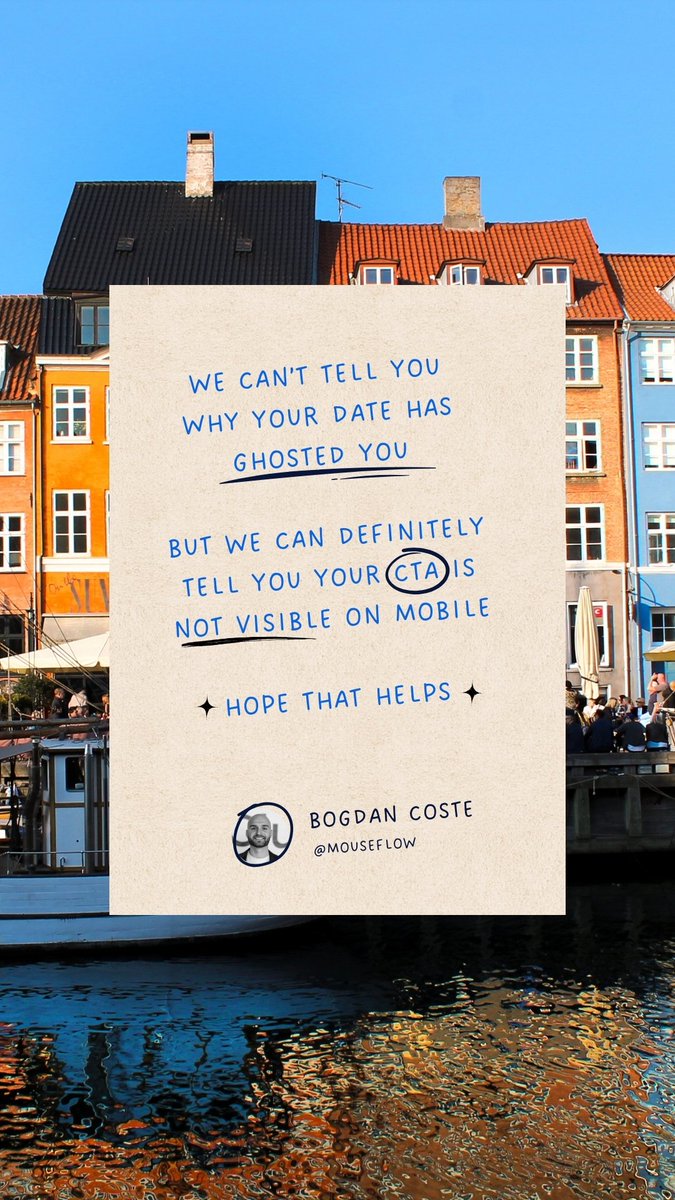 WE CAN'T TELL YOU
WHY YOUR DATE HAS
GHOSTED YOU
BUT WE CAN DEFINITELY
TELL YOU YOUR CTA IS
NOT VISIBLE ON MOBILE
HOPE THAT HELPS
BOGDAN COSTE
@MOUSEFLOW